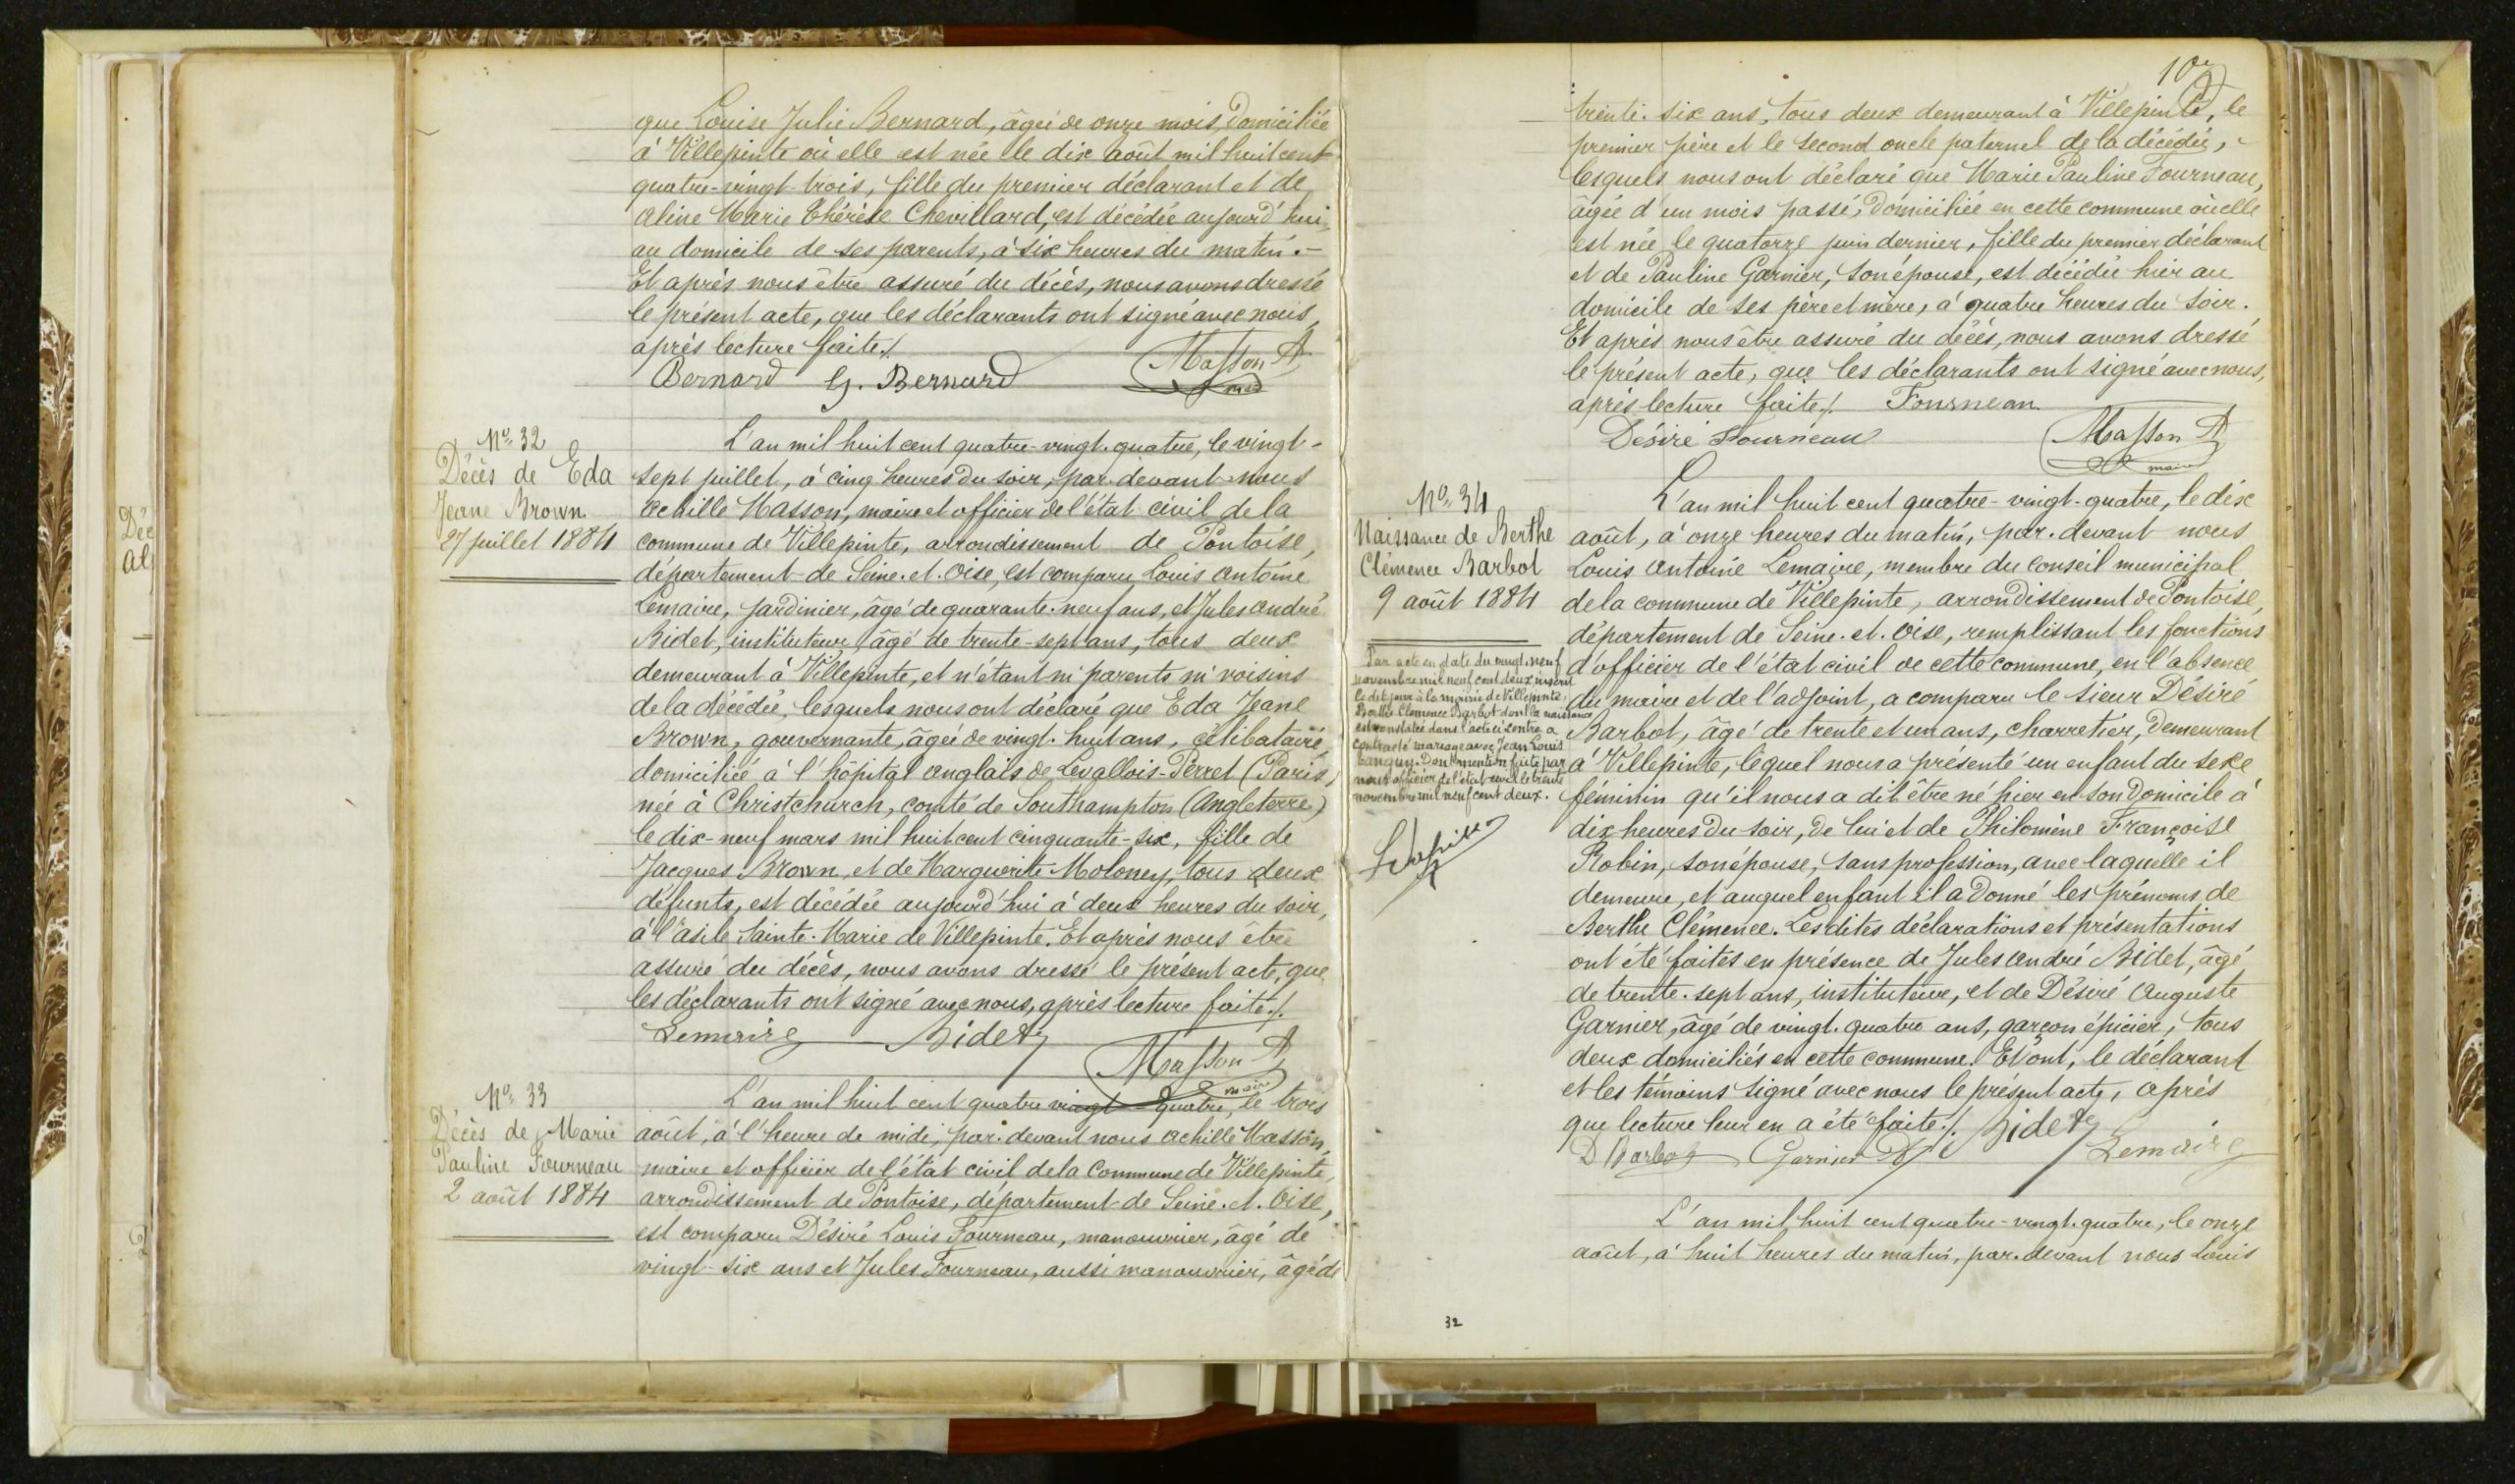 que Louise Julie Bernard, âgée de onze mois, domiciliée
à Villepinte où elle est née le dix août mil huit cent
quatre-vingt-trois, fille du premier déclarant et de
Aline Marie Thérèse Chevillard, est décédée aujourd'hui
au domicile de ses parents, à six heures du matin.-
Et après nous être assuré du décès, nous avons dressé
le présent acte, que les déclarants ont signé avec nous,
après lecture faite./.
Bernard G. Bernard Masson A
No. 32
Décès de Eda
Jeane Brown
27 juillet 1884
L'an mil huit cent quatre-vingt-quatre, le vingt-
sept juillet, à cinq heures du soir, par-devant nous
Achille Masson, maire et officier de l'état civil de la
commune de Villepinte, arrondissement de Pontoise,
département de Seine-et-Oise, est comparu Louis Antoine
Lemaire, jardinier, âgé de quarante-neuf ans, et Jules André
Bidet, instituteur, âgé de trente-sept ans, tous deux
demeurant à Villepinte, et n'étant ni parents ni voisins
de la décédée, lesquels nous ont déclaré que Eda Jeane
Brown, gouvernante, âgée de vingt-huit ans, célibataire,
domiciliée à l'hôpital anglais de Levallois-Perret (Paris)
née à Christchurch, comté de Southampton (Angleterre)
le dix-neuf mars mil huit cent cinquante-six, fille de
Jacques Brown et de Marguerite Moloney, tous deux
défunts, est décédée aujourd'hui à deux heures du soir,
à l'asile Sainte-Marie de Villepinte. Et après nous être
assuré du décès, nous avons dressé le présent acte, que
les déclarants ont signé avec nous, après lecture faite./.
Lemaire Bidet Masson A
maire
No. 33
Décès de Marie
Pauline Fourneau
2 août 1884
L'an mil huit cent quatre vingt-quatre, le trois
août, à l'heure de midi, par-devant nous Achille Masson,
maire et officier de l'état civil de la Commune de Villepinte,
arrondissement de Pontoise, département de Seine-et-Oise,
est comparu Désiré Louis Fourneau, manouvrier, âgé de
vingt-six ans et Jules Fourneau, aussi manouvrier, âgé de
trente-six ans, tous deux demeurant à Villepinte, le
premier père et le second oncle paternel de la décédée,
lesquels nous ont déclaré que Marie Pauline Fourneau,
âgée d'un mois passé, domiciliée en cette commune où elle
est née le quatorze juin dernier, fille du premier déclarant
et de Pauline Garnier, son épouse, est décédée hier au
domicile de ses père et mère, à quatre heures du soir.
Et après nous être assuré du décès, nous avons dressé
le présent acte, que les déclarants ont signé avec nous,
après lecture faite./. Fourneau
Désiré Fourneau Masson A
maire
No. 34
Naissance de Berthe
Clémence Barbot
9 août 1884
Par acte en date du vingt-neuf
novembre mil neuf cent deux inscrit
le dit jour à la mairie de Villepinte,
Berthe Clémence Barbot dont la naissance
est constatée dans l'acte ci contre a
contracté mariage avec Jean Louis
Dont mention faite par
nous officier de l'état civil le trente
novembre mil neuf cent deux.
L'an mil huit cent quatre-vingt-quatre, le dix
août, à onze heures du matin, par-devant nous
Louis Antoine Lemaire, membre du conseil municipal
de la commune de Villepinte, arrondissement de Pontoise,
département de Seine-et-Oise, remplissant les fonctions
d'officier de l'état civil de cette commune, en l'absence
du maire et de l'adjoint, a comparu le sieur Désiré
Barbot, âgé de trente et un ans, charretier, demeurant
à Villepinte, lequel nous a présenté un enfant du sexe
féminin qu'il nous a dit être né hier en son domicile à
dix heures du soir, de lui et de Philomène Françoise
Robin, son épouse, sans profession, avec laquelle il
demeure, et auquel enfant il a donné les prénoms de
Berthe Clémence. Les dites déclarations et présentations
ont été faites en présence de Jules André Bidet, âgé
de trente-sept ans, instituteur, et de Désiré Auguste
Garnier, âgé de vingt-quatre ans, garçon épicier, tous
deux domiciliés en cette commune. Et ont, le déclarant
et les témoins signé avec nous le présent acte, après
que lecture leur en a été faite./. Bidet
D Barbot Garnier D Lemaire
L'an mil huit cent quatre-vingt-quatre, le onze
août, à huit heures du matin, par-devant nous Louis
32